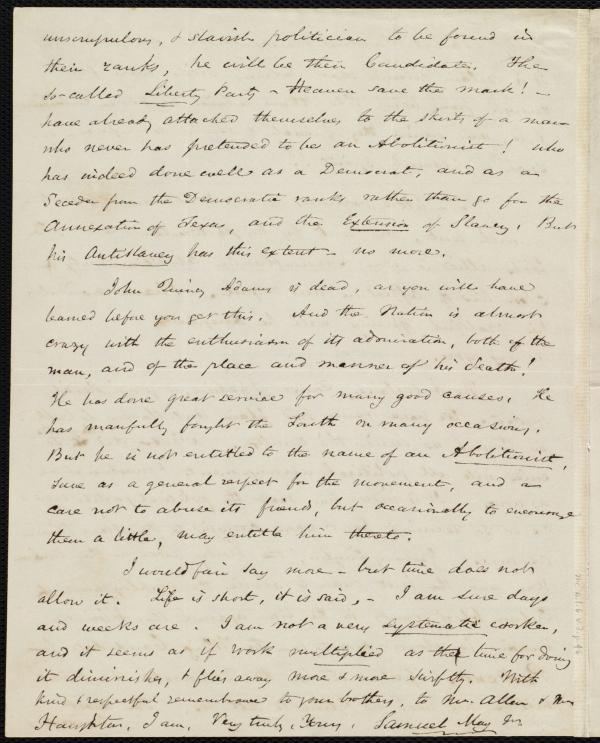 unscrupulous, & slavish politician to be found in
their ranks, he will be their Candidate. The
so-called Liberty Party - Heaven save the mark! -
have already attached themselves to the skirts of a man
who never has pretended to be an Abolitionist! who
has indeed done well as a Democrat, and as a
Seceder from the Democratic ranks rather than go for the
Annexation of Texas, and the Extension of Slavery. But
his Antislavery has this extent - no more.
John Quincy Adams is dead, as you will have
learned before you get this. And the Nation is almost
crazy with the enthusiasm of its admiration, both of the
man, and of the place and manner of his death!
He has done great service for many good causes. He
has manfully fought the South on many occasions.
But he is not entitled to the name of an Abolitionist,
save as a general respect for the movement, and a
care not to abuse its friends, but occasionally to encourage
them a little, may entitle him thereto.
I would fain say more - but time does not
allow it. Life is short, it is said, - I am sure days
and weeks are. I am not a very systematic worker,
and it seems as if work multiplied as the time for doing
it diminishes, & flies away more & more swiftly. With
kind & respectful remembrance to your brothers, to Mr. Allen & Mr.
Haughton, I am, Very truly, Yours, Samuel May Jr.